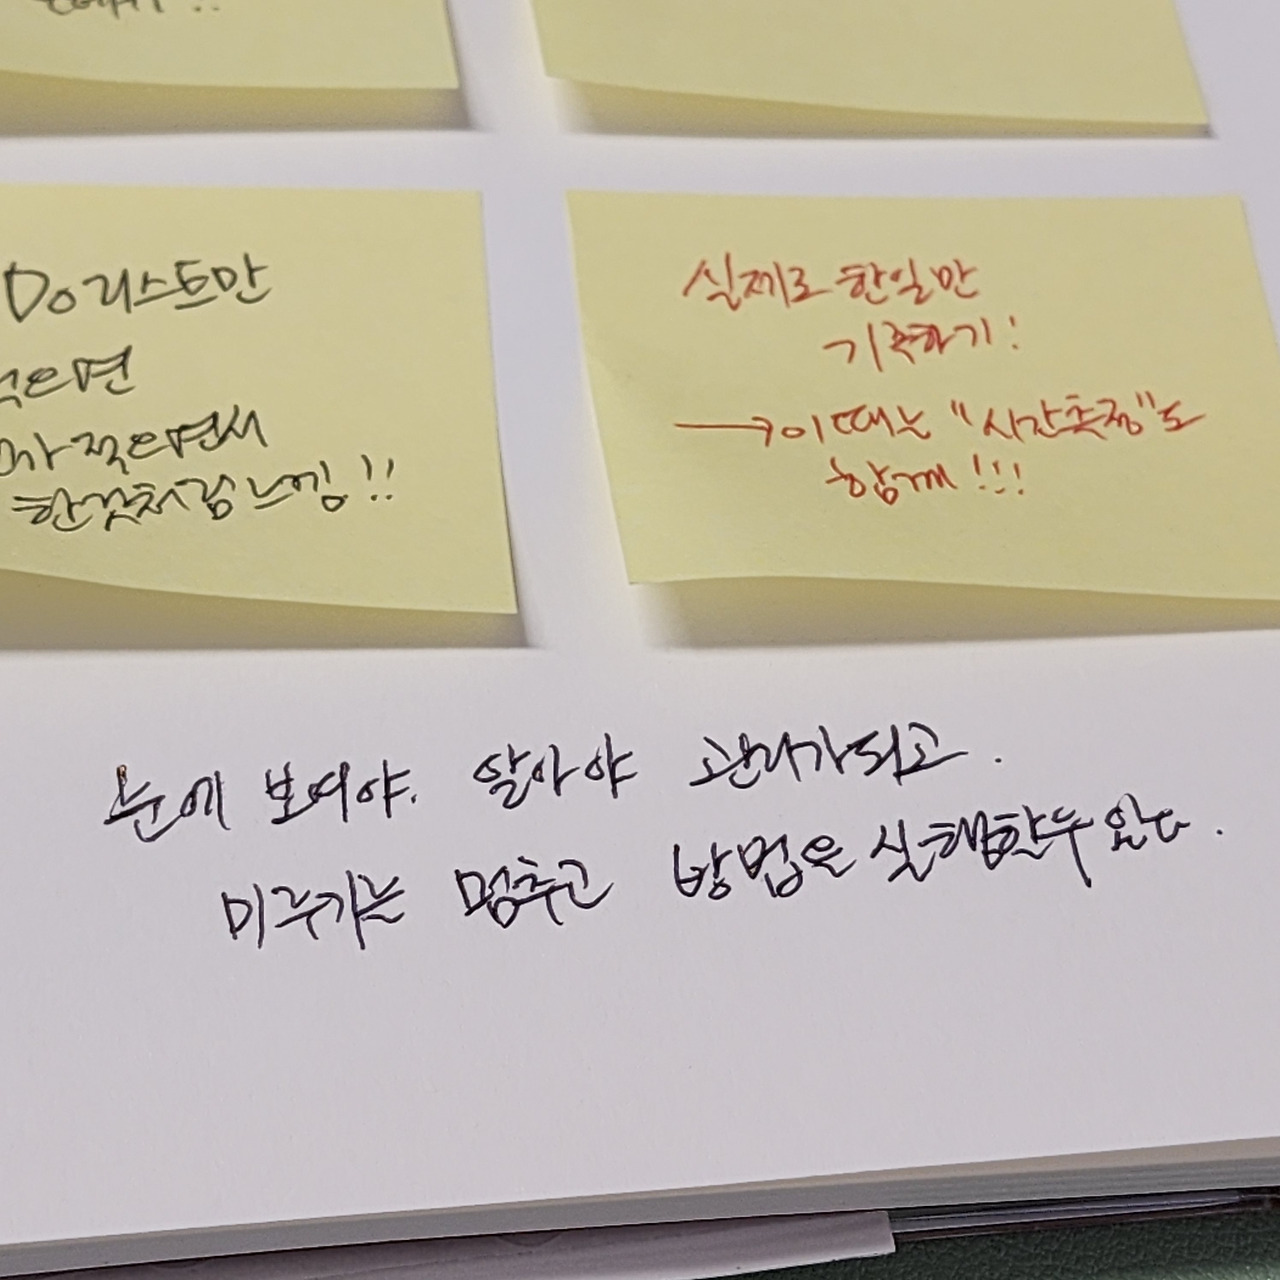 Do리스트만
적으면
적으면서
한것처럼 느낌!!
실제로 한일만
기록하기!
→이때는 "시간측정"도
함께!!!
눈에 보여야. 알아야 관리가되고.
미루기는 멈추고 방법은 실행할수있다.